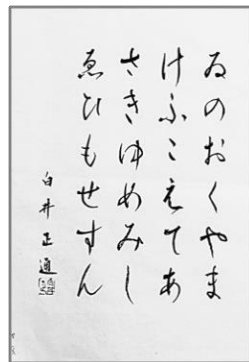 ゐのおくやま
けふこえてあ
さきゆめみし
ゑひもせすん
白井正通